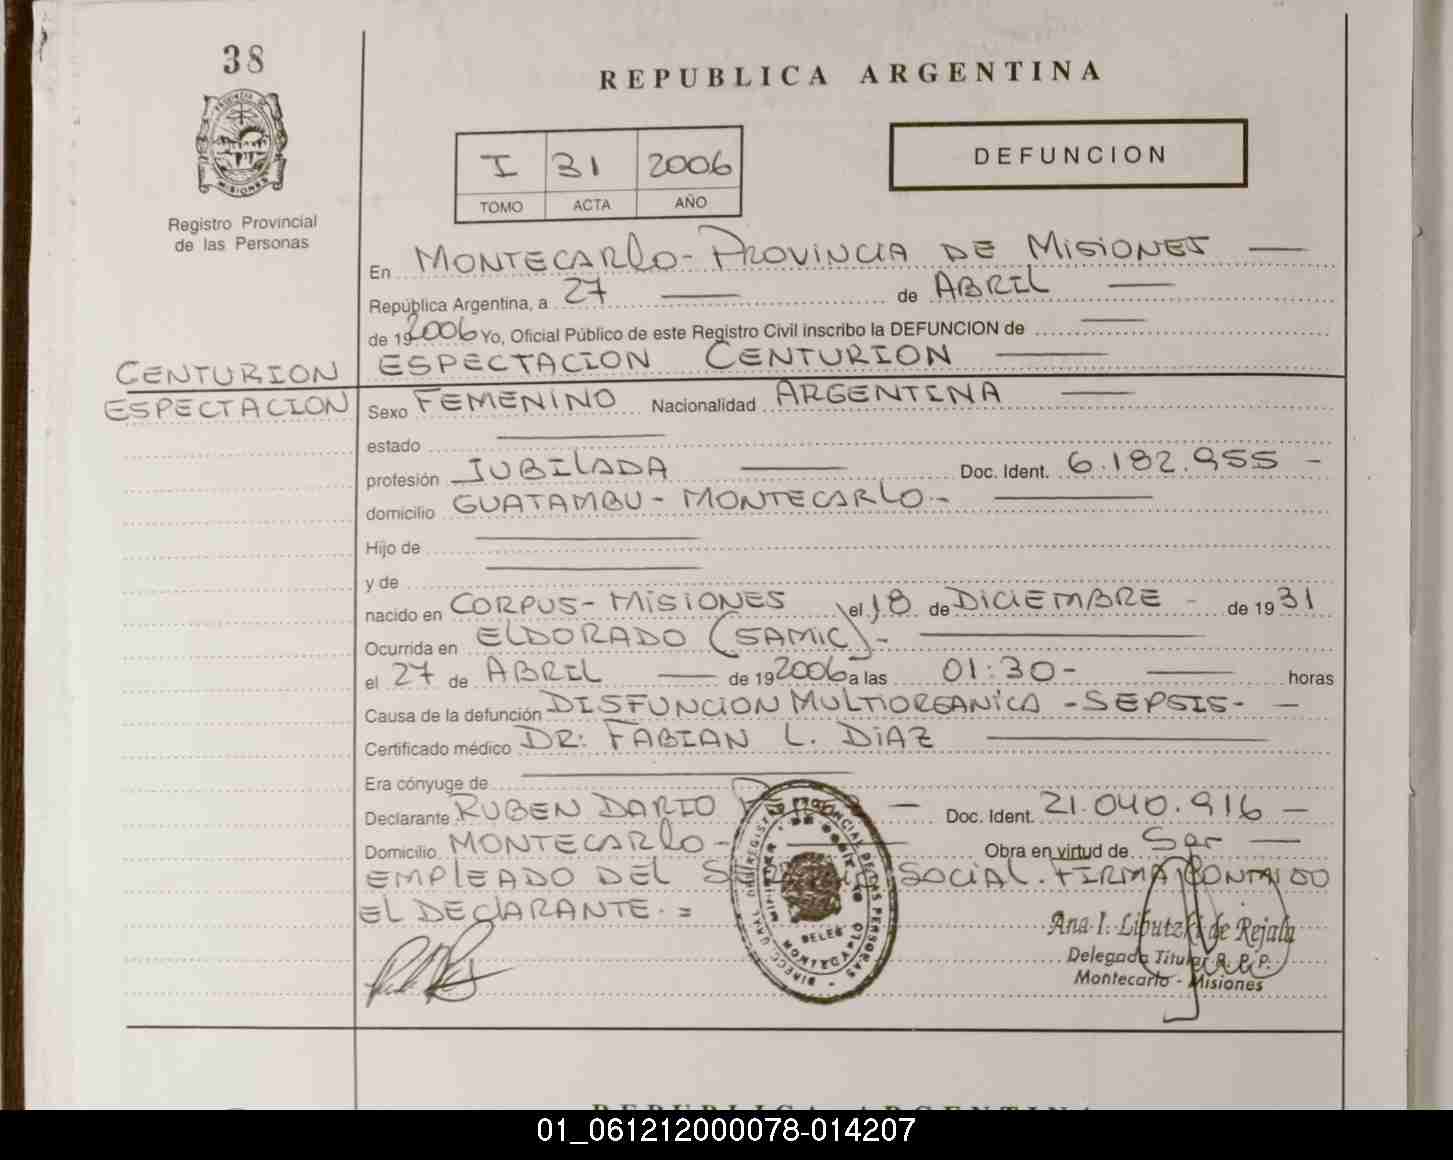 38
REPUBLICA ARGENTINA
PROVINCIA DE
MISIONES
I 31 2006
TOMO ACTA AÑO
DEFUNCION
Registro Provincial
de las Personas
En MONTECARLO - PROVINCIA DE MISIONES
República Argentina, a 27 de ABRIL
de 192006 Yo, Oficial Público de este Registro Civil inscribo la DEFUNCION de
CENTURION
ESPECTACION
ESPECTACION CENTURION
Sexo FEMENINO Nacionalidad ARGENTINA
estado
profesión JUBILADA Doc. Ident. 6.182.955 -
domicilio GUATAMBU - MONTECARLO -
Hijo de
y de
nacido en CORPUS - MISIONES el 18 de DICIEMBRE - de 1931
Ocurrida en ELDORADO (SAMIC) -
el 27 de ABRIL de 192006 a las 01:30 - horas
Causa de la defunción DISFUNCION MULTIORGANICA - SEPSIS -
Certificado médico DR: FABIAN L. DIAZ
Era cónyuge de
Declarante RUBEN DARIO Doc. Ident. 21.040.916 -
Domicilio MONTECARLO - Obra en virtud de Ser
EMPLEADO DEL SOCIAL. FIRMA CONMIGO
EL DECLARANTE. =
MONTECARLO
Ana I. Libutzki de Rejala
Delegada Titular R. P. P.
Montecarlo - Misiones
REPUBLICA ARGENTINA
01_061212000078-014207